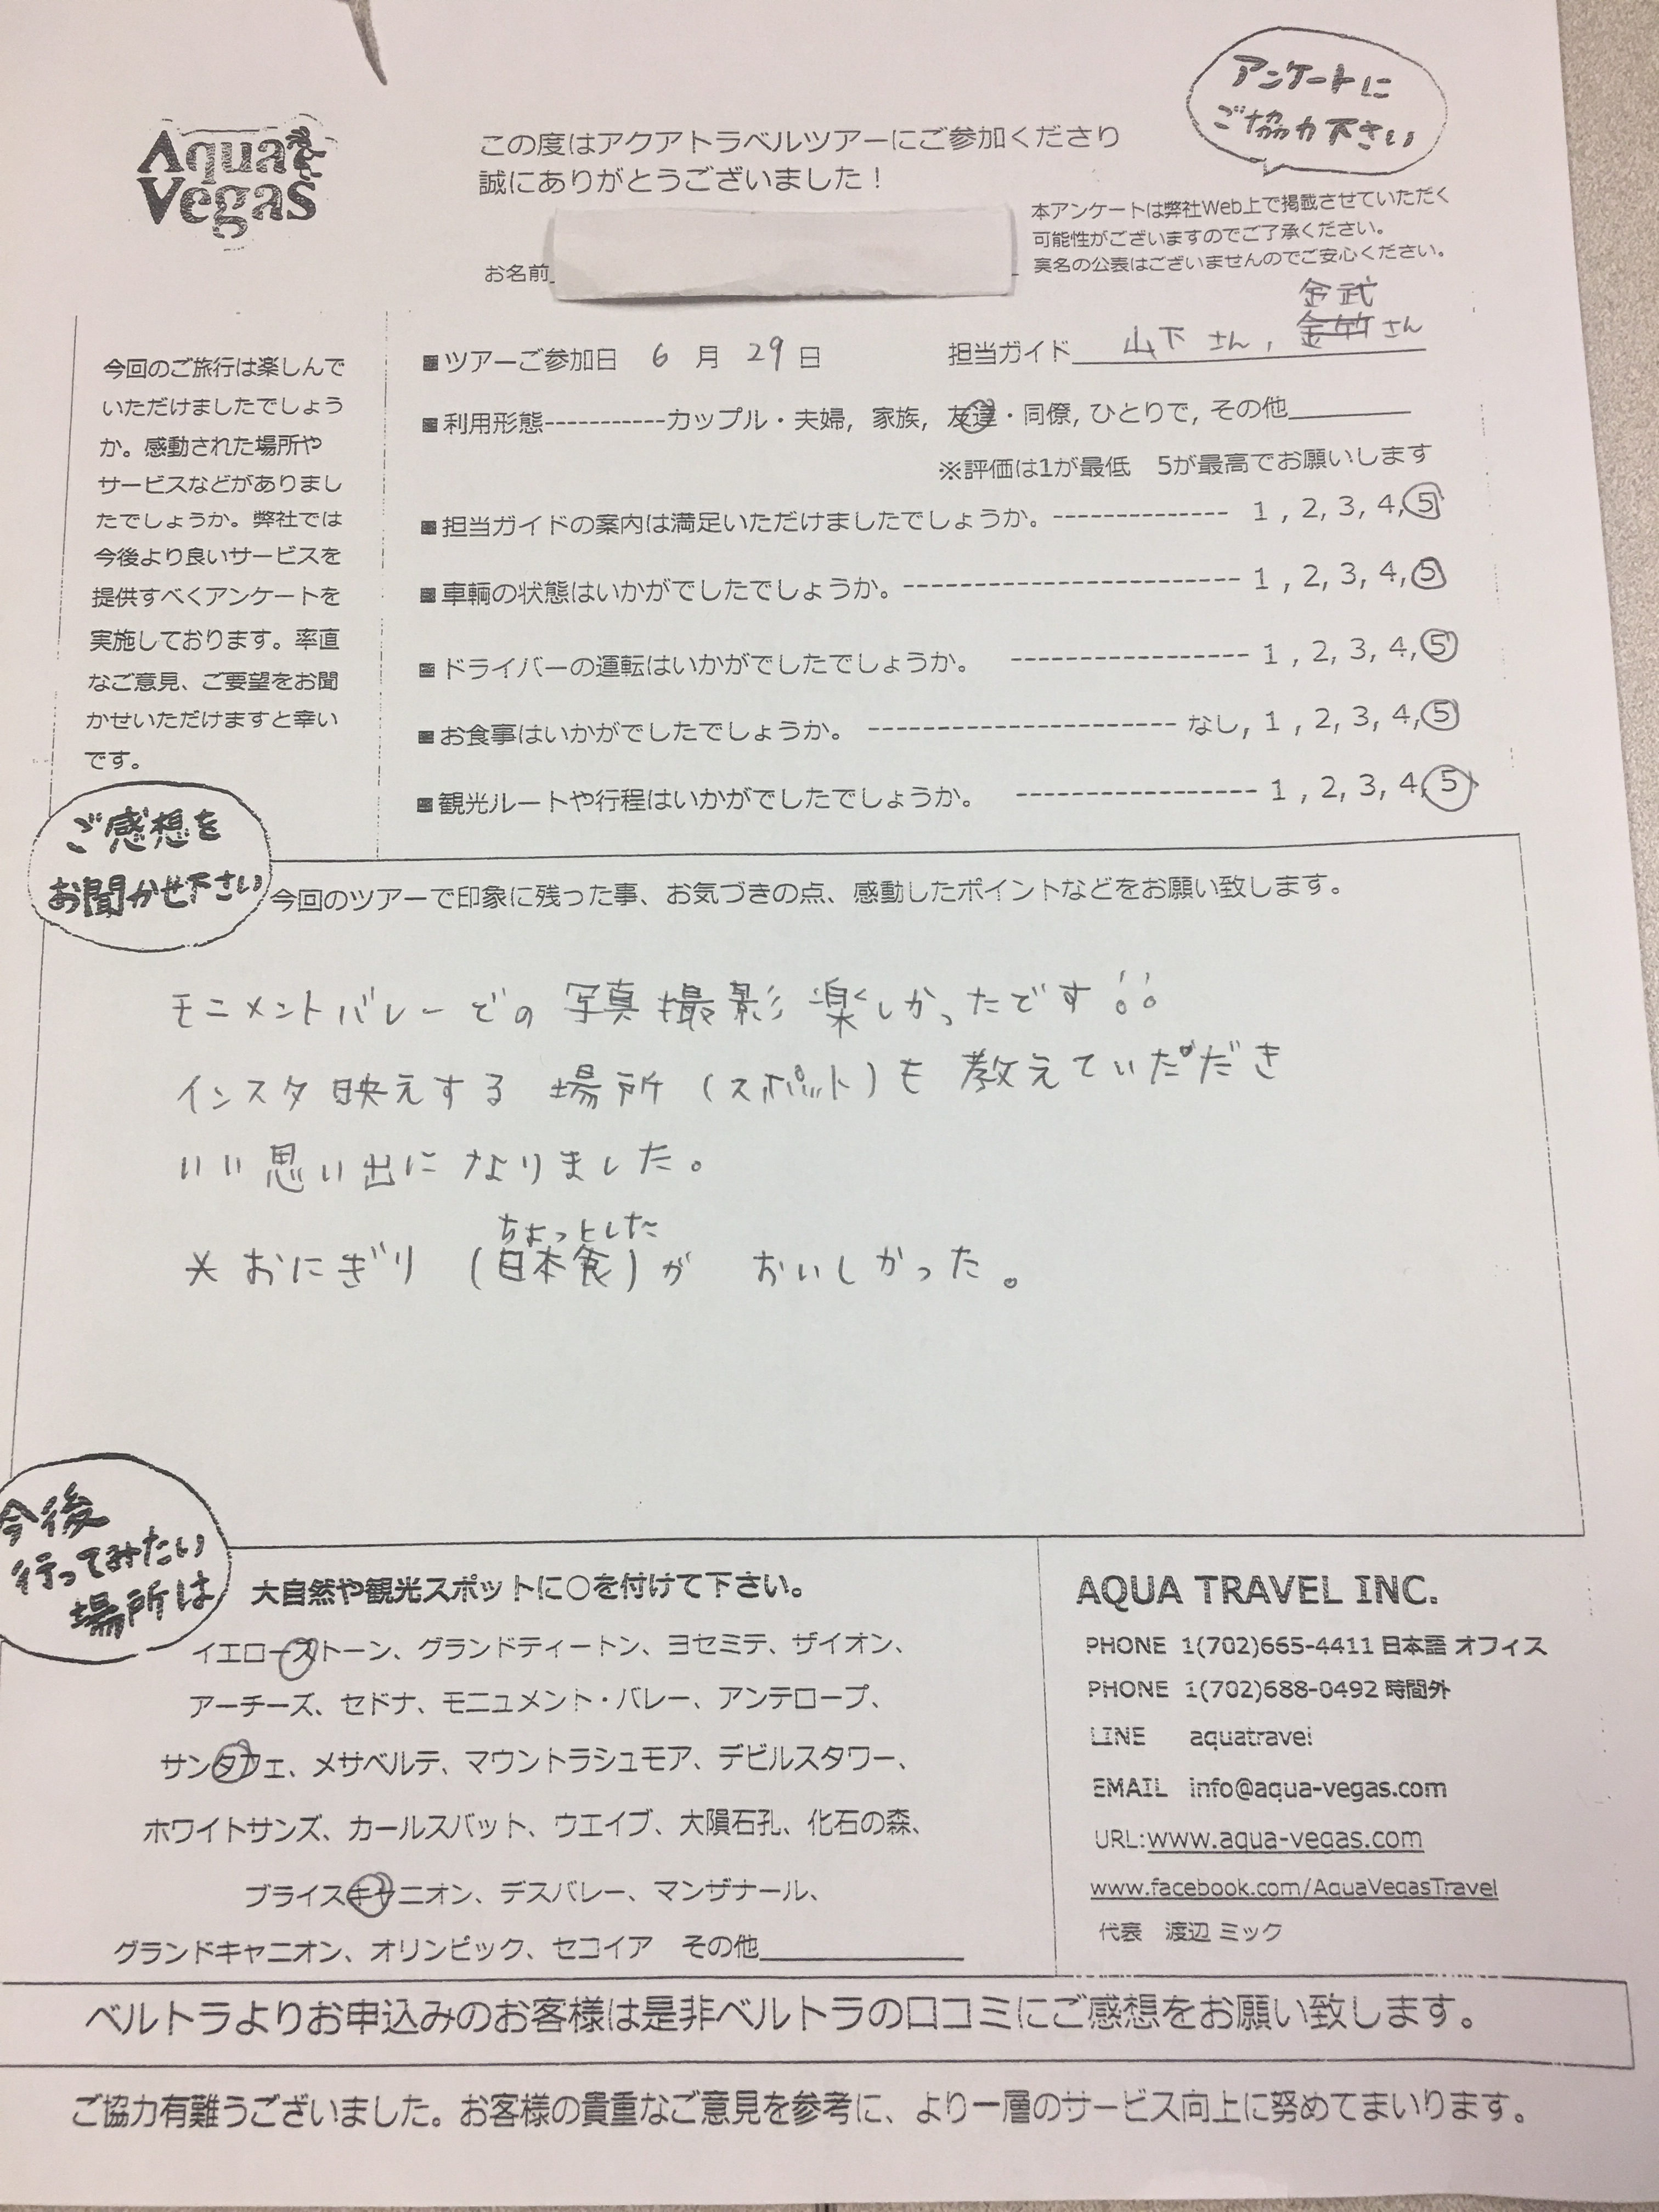 Aqua Vegas
アンケートに
ご協力下さい
この度はアクアトラベルツアーにご参加くださり
誠にありがとうございました！
本アンケートは弊社Web上で掲載させていただく
可能性がございますのでご了承ください。
実名の公表はございませんのでご安心ください。
お名前
今回のご旅行は楽しんで
いただけましたでしょう
か。感動された場所や
サービスなどがありまし
たでしょうか。弊社では
今後より良いサービスを
提供すべくアンケートを
実施しております。率直
なご意見、ご要望をお聞
かせいただけますと幸い
です。
金武
■ツアーご参加日 6 月 29 日 担当ガイド 山下 さん, 金竹 さん
■利用形態-----------カップル・夫婦, 家族, 友達・同僚, ひとりで, その他
※評価は1が最低 5が最高でお願いします
■担当ガイドの案内は満足いただけましたでしょうか。-------------- 1 , 2, 3, 4, 5
■車輌の状態はいかがでしたでしょうか。--------------------------- 1 , 2, 3, 4, 5
■ドライバーの運転はいかがでしたでしょうか。 ----------------- 1 , 2, 3, 4, 5
■お食事はいかがでしたでしょうか。 --------------------- なし, 1 , 2, 3, 4, 5
■観光ルートや行程はいかがでしたでしょうか。 ----------------- 1 , 2, 3, 4, 5
ご感想を
お聞かせ下さい
今回のツアーで印象に残った事、お気づきの点、感動したポイントなどをお願い致します。
モニメントバレーでの 写真撮影楽しかったです!!
インスタ映えする 場所 (スポット)も 教えていただき
いい思い出になりました。
ちょっとした
* おにぎり (日本食)が おいしかった。
今後
行ってみたい
場所は
大自然や観光スポットに○を付けて下さい。
イエローストーン、グランドティートン、ヨセミテ、ザイオン、
アーチーズ、セドナ、モニュメント・バレー、アンテロープ、
サンタフェ、メサベルテ、マウントラシュモア、デビルスタワー、
ホワイトサンズ、カールスバット、ウエイブ、大隕石孔、化石の森、
ブライスキャニオン、デスバレー、マンザナール、
グランドキャニオン、オリンピック、セコイア その他
AQUA TRAVEL INC.
PHONE 1(702)665-4411 日本語 オフィス
PHONE 1(702)688-0492 時間外
LINE aquatravel
EMAIL info@aqua-vegas.com
URL:www.aqua-vegas.com
www.facebook.com/AquaVegasTravel
代表 渡辺 ミック
ベルトラよりお申込みのお客様は是非ベルトラの口コミにご感想をお願い致します。
ご協力有難うございました。お客様の貴重なご意見を参考に、より一層のサービス向上に努めてまいります。